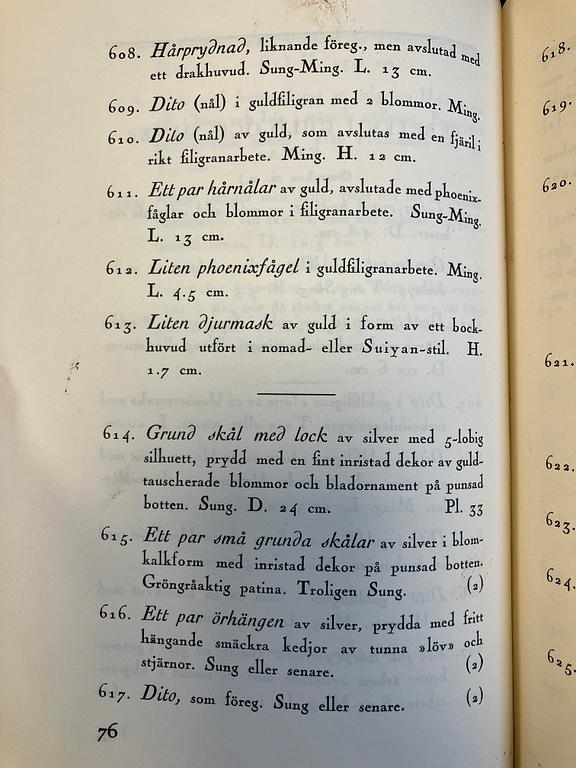 608. Hårprydnad, liknande föreg., men avslutad med
ett drakhuvud. Sung-Ming. L. 13 cm.
609. Dito (nål) i guldfiligran med 2 blommor. Ming.
610. Dito (nål) av guld, som avslutas med en fjäril i
rikt filigranarbete. Ming. H. 12 cm.
611. Ett par hårnålar av guld, avslutade med phoenix-
fåglar och blommor i filigranarbete. Sung-Ming.
L. 13 cm.
612. Liten phoenixfågel i guldfiligranarbete. Ming.
L. 4.5 cm.
613. Liten djurmask av guld i form av ett bock-
huvud utfört i nomad- eller Suiyan-stil. H.
1.7 cm.
614. Grund skål med lock av silver med 5-lobig
silhuett, prydd med en fint inristad dekor av guld-
tauscherade blommor och bladornament på punsad
botten. Sung. D. 24 cm. Pl. 33
615. Ett par små grunda skålar av silver i blom-
kalkform med inristad dekor på punsad botten.
Gröngråaktig patina. Troligen Sung. (2)
616. Ett par örhängen av silver, prydda med fritt
hängande smäckra kedjor av tunna »löv» och
stjärnor. Sung eller senare. (2)
617. Dito, som föreg. Sung eller senare. (2)
76
618.
619.
620.
621.
622.
623.
624.
625.